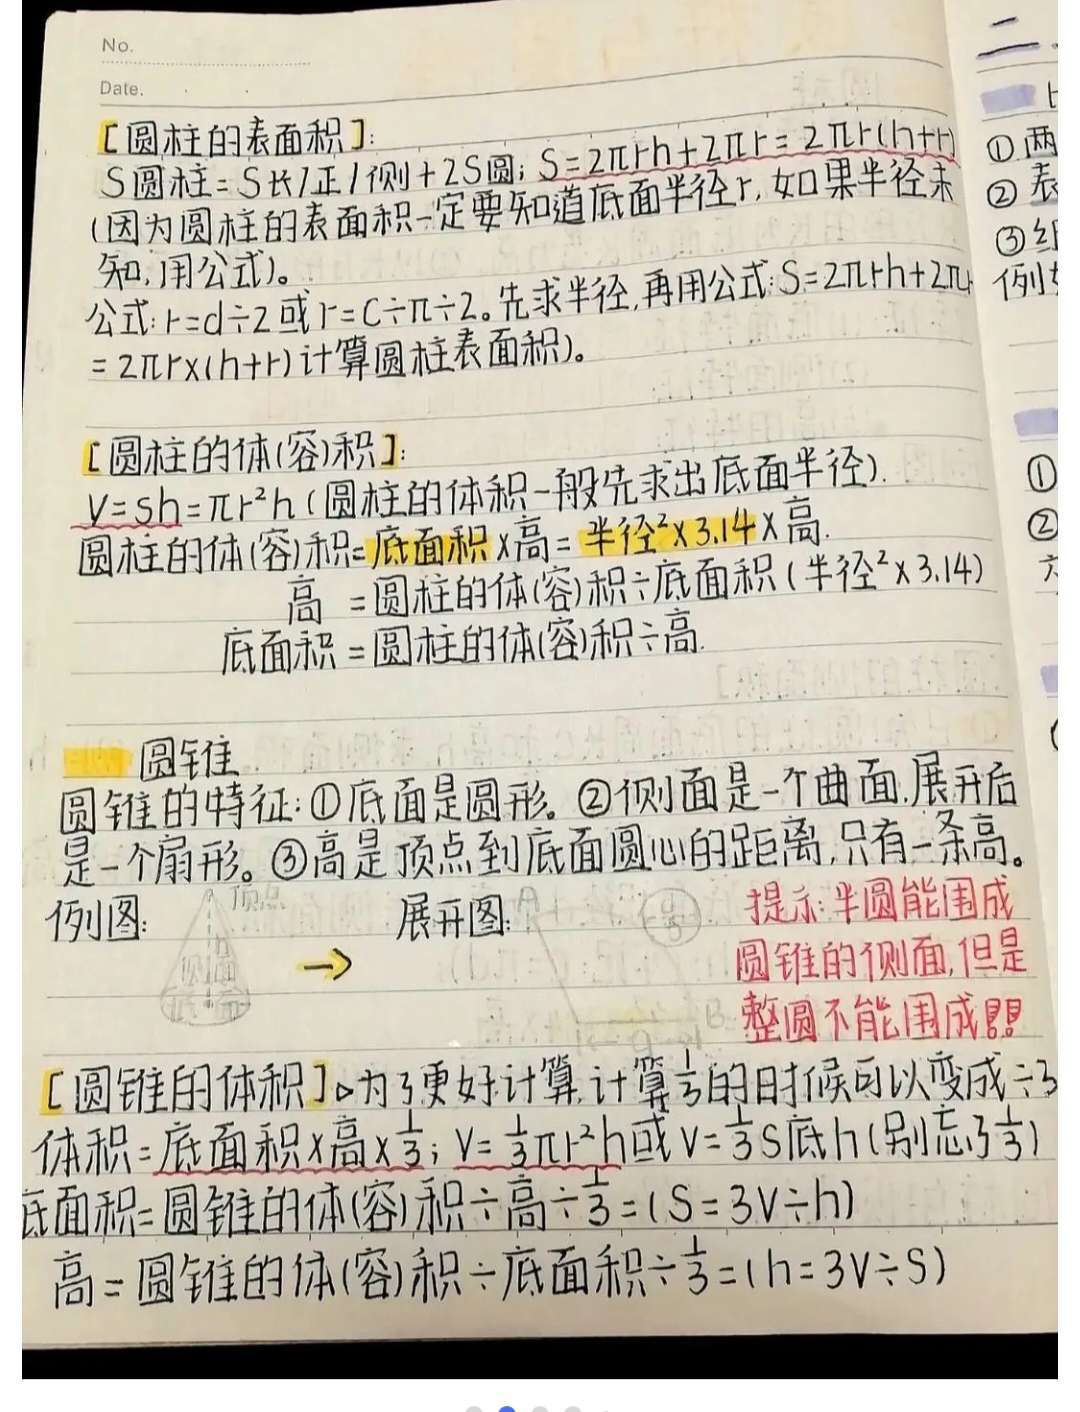 No.
Date.
[圆柱的表面积]:
S圆柱=S长/正/侧+2S圆; S=2πrh+2πr=2πr(h+r)
(因为圆柱的表面积一定要知道底面半径r,如果半径未
知,用公式)。
公式:r=d÷2或r=C÷π÷2。先求半径,再用公式:S=2πrh+2πr
=2πr×(h+r)计算圆柱表面积)。
[圆柱的体(容)积]:
V=sh=πr²h(圆柱的体积一般先求出底面半径).
圆柱的体(容)积=底面积×高=半径²×3.14×高.
高 =圆柱的体(容)积÷底面积(半径²×3.14)
底面积=圆柱的体(容)积÷高.
圆锥
圆锥的特征:①底面是圆形。②侧面是一个曲面,展开后
是一个扇形。③高是顶点到底面圆心的距离,只有一条高。
例图: 顶点
展开图: A
h
侧面
B
提示:半圆能围成
圆锥的侧面,但是
整圆不能围成!!
[圆锥的体积]。为了更好计算,计算1/3的时候可以变成÷3
体积=底面积×高×1/3; V=1/3πr²h或V=1/3S底h(别忘了1/3)
底面积=圆锥的体(容)积÷高÷1/3=(S=3V÷h)
高=圆锥的体(容)积÷底面积÷1/3=(h=3V÷S)
二.
①两
②表
③组
例如
①
②